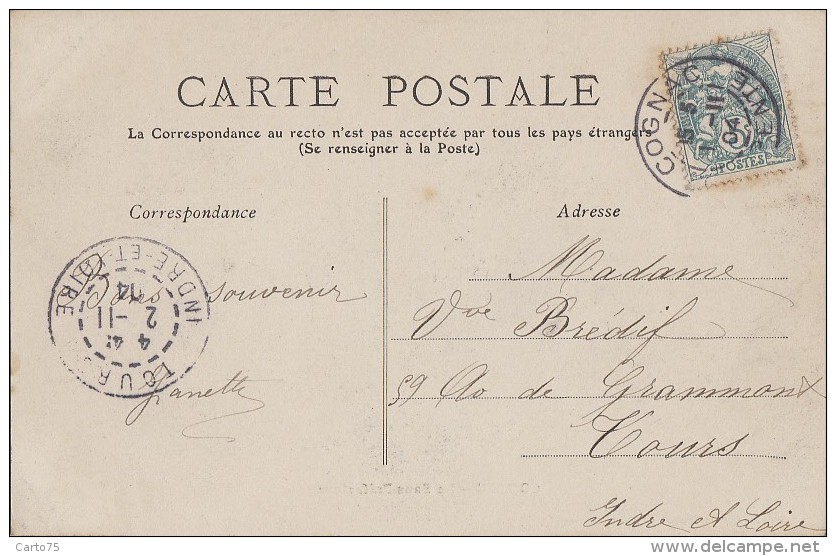 CARTE POSTALE
La Correspondance au recto n'est pas acceptée par tous les pays étrangers
(Se renseigner à la Poste)
Correspondance
Adresse
COGNAC
POSTES
TOURS
INDRE-ET-LOIRE
4 4
2 -11
04
souvenir
Madame
Vve Brédif
59 Av de Grammont
Tours
Indre et Loire
Carto75
www.delcampe.net